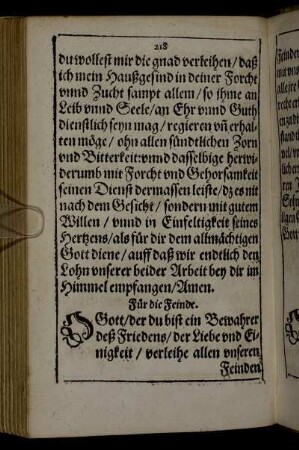 218
du wollest mir die gnad verleihen / daß
ich mein Haußgesind in deiner Forcht
vnnd Zucht sampt allem / so ihme an
Leib vnnd Seele / an Ehr vnnd Guth
dienstlich seyn mag / regieren vñ erhal-
ten möge / ohn allen sündtlichen Zorn
vnd Bitterkeit: vnnd dasselbige herwi-
derumb mit Forcht vnd Gehorsamkeit
seinen Dienst dermassen leiste / dz es nit
nach dem Gesicht / sondern mit gutem
Willen / vnnd in Einfeltigkeit seines
Hertzens / als für dir dem allmächtigen
Gott diene / auff daß wir endtlich den
Lohn vnserer beider Arbeit bey dir im
Himmel empfangen / Amen.
Für die Feinde.
O Gott / der du bist ein Bewahrer
deß Friedens / der Liebe vnd Ei-
nigkeit / verleihe allen vnseren
Feinden